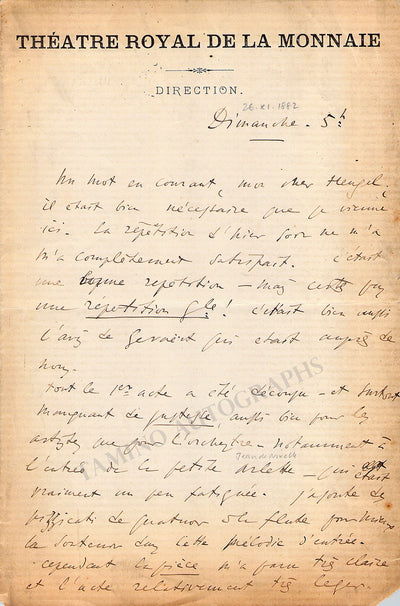 THÉATRE ROYAL DE LA MONNAIE
DIRECTION.
26.XI.1882
Dimanche - 5h
Un mot en courant, mon cher Heugel,
il était bien nécessaire que je vienne
ici. La répétition d'hier soir ne m'a
m'a complètement satisfait. C'était
une bonne répétition - mais cette fois
une répétition gle! C'était bien aussi
l'avis de Gevaert qui était auprès de
nous.
Tout le 1er acte a été décousu - et surtout
manquant de justesse, aussi bien pour les
artistes que pour l'orchestre - notamment à
Jean de Nivelle
l'entrée de la petite Arlette - qui était
vraiment un peu fatiguée. J'ajoute des
pizzicati de quatuor & la flute pour mieux
la soutenir dans cette mélodie d'entrée.
Cependant la pièce m'a paru très claire
et l'acte relativement très léger.
TAMINO AUTOGRAPHS